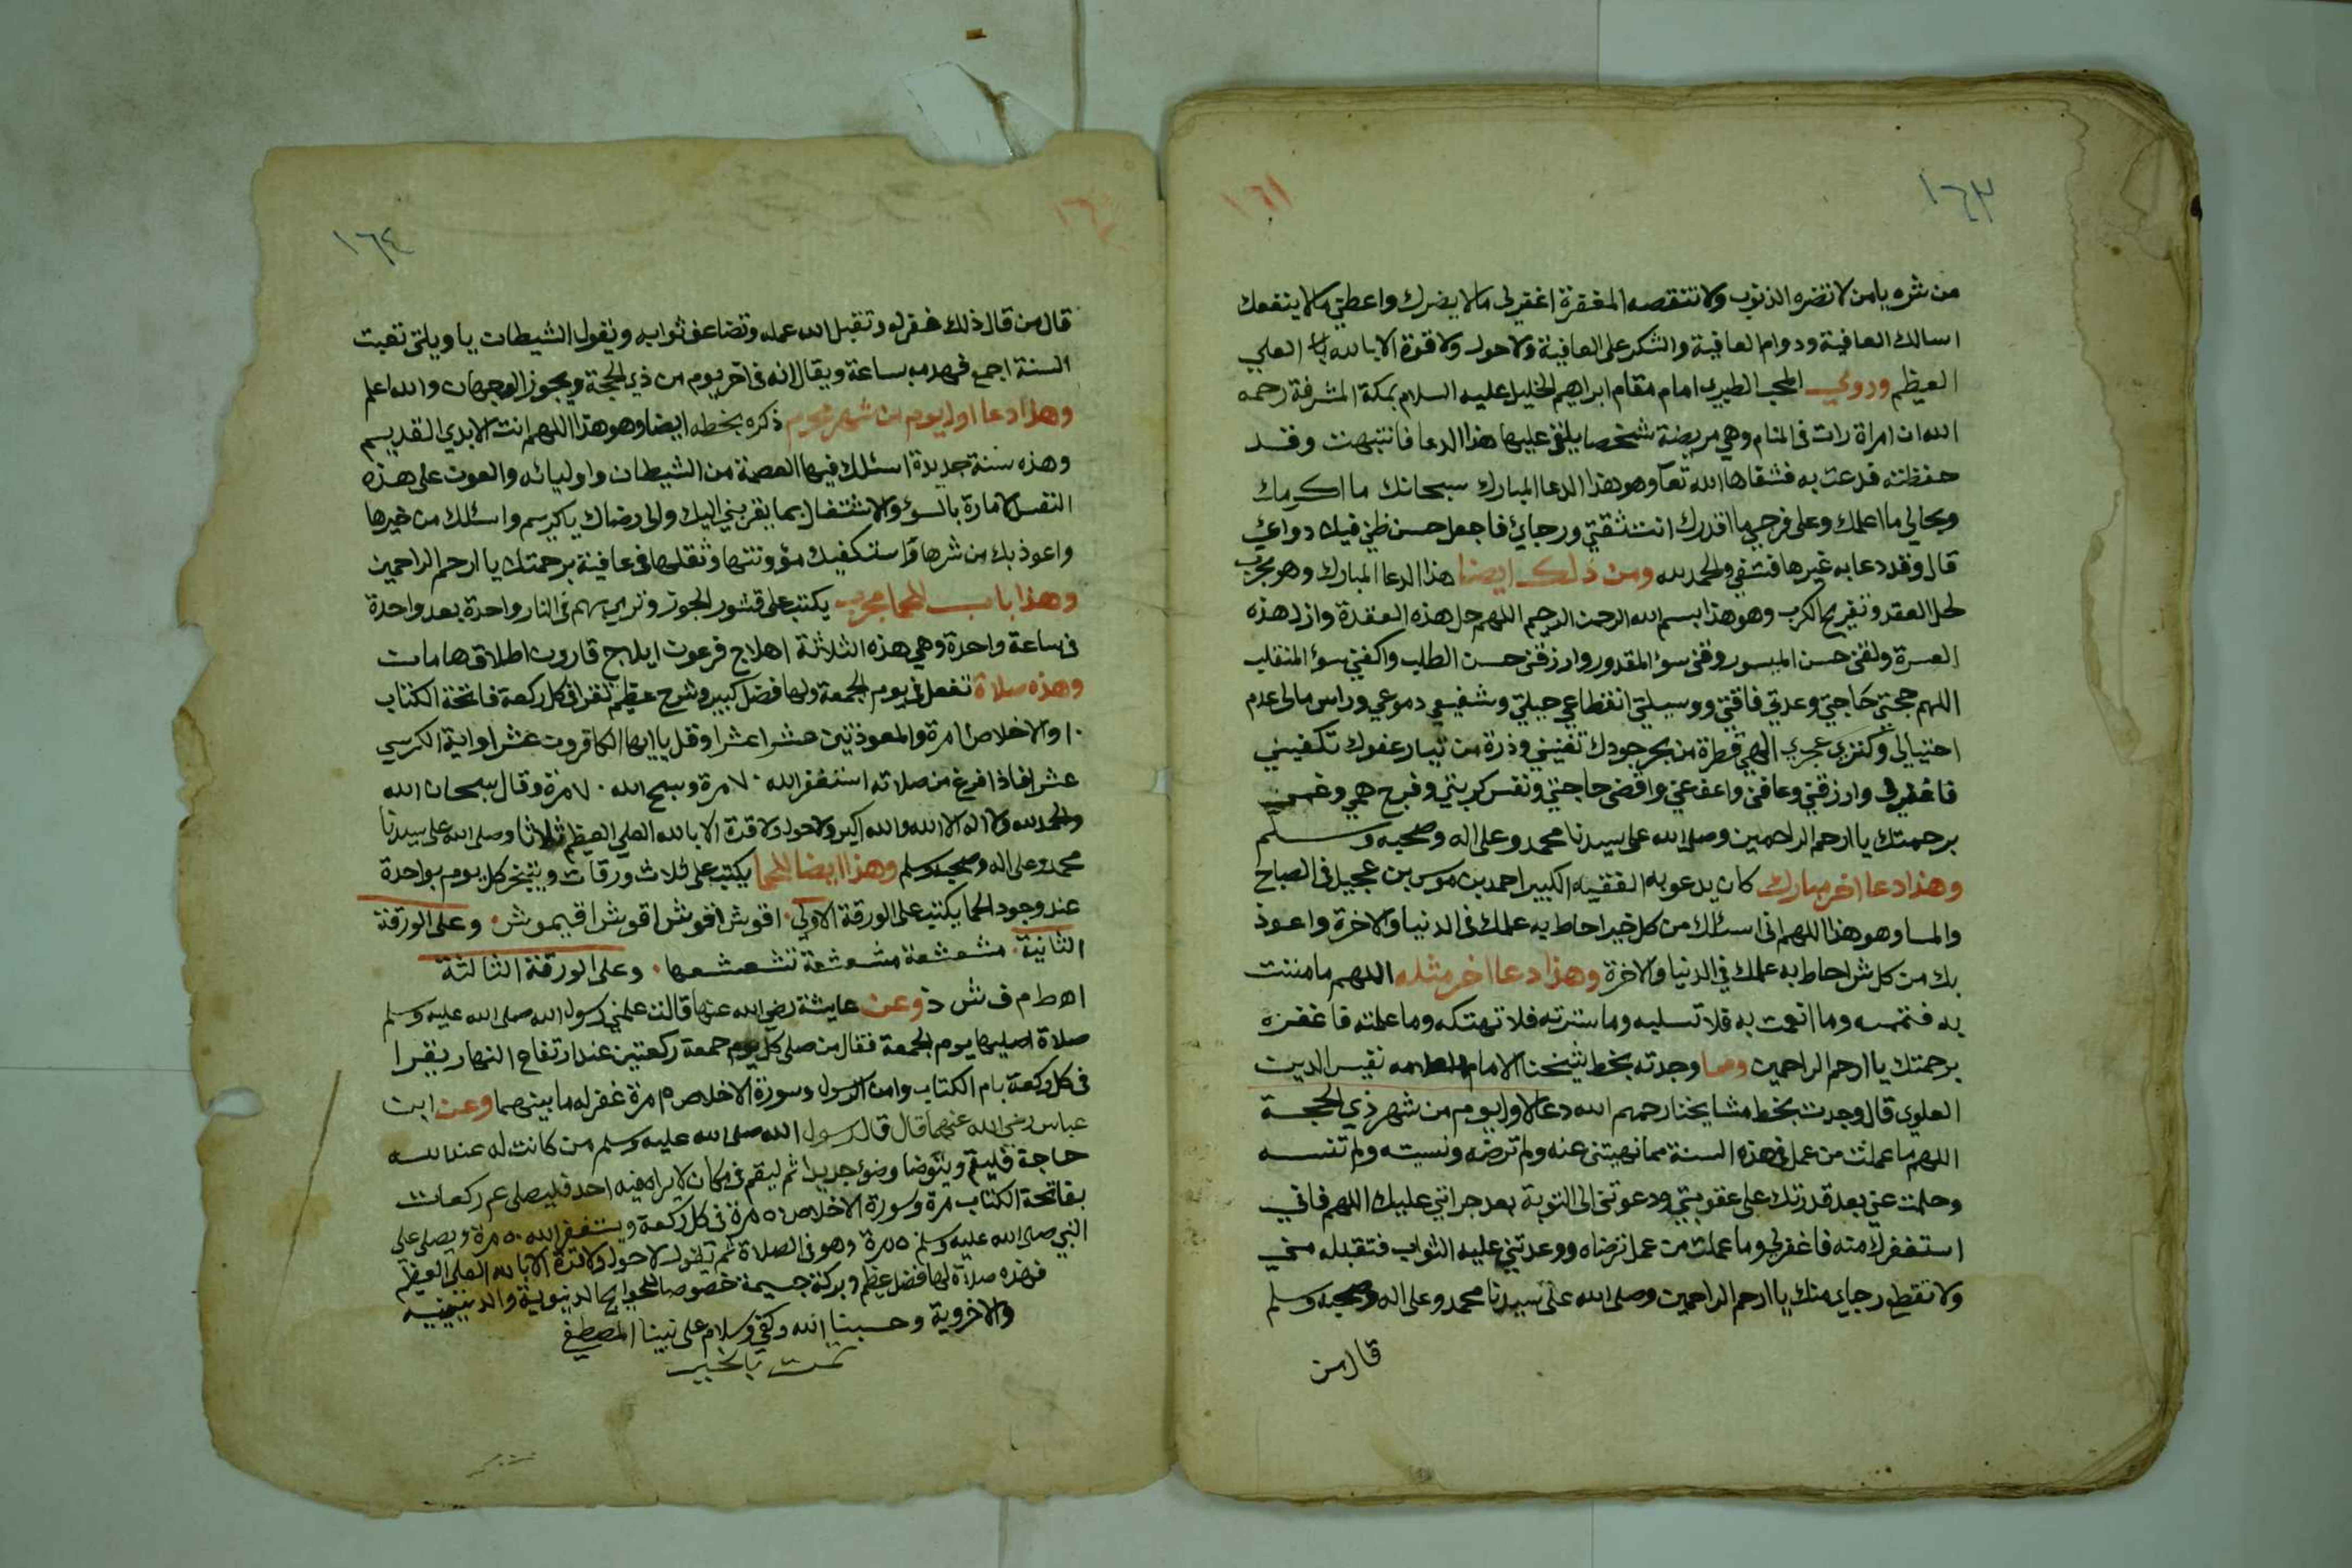 ١٦٣
١٦١
من شره يا من لا تضره الذنوب ولا تنقصه المغفرة اغفر لي ما لا يضرك واعطني ما لا ينفعك
اسالك العافية ودوام العافية والشكر على العافية ولا حول ولا قوة الا بالله العلي
العظيم وروي المحب الطبري امام مقام ابراهيم الخليل عليه السلام بمكة المشرفة رحمه
الله ان امراة رات في المنام وهي مريضة شخصا يلقي عليها هذا الدعا فانتبهت وقد
حفظته فدعت به فشفاها الله تعآ وهو هذا الدعا المبارك سبحانك ما اكرمك
وبحالي ما اعلمك وعلى فرجي ما اقدرك انت ثقتي ورجاي فاجعل حسن ظني فيك دواي
قال وقد دعا به غيرها فشفي والحمد لله ومن ذلك ايضا هذا الدعا المبارك وهو مجرب
لحل العقد وتفريج الكرب وهو هذا بسم الله الرحمن الرحيم اللهم حل هذه العقدة وازل هذه
العسرة ولقني حسن الميسور وقني سوء المقدور وارزقني حسن الطلب واكفني سوء المنقلب
اللهم حجتي حاجتي وعدتي فاقتي ووسيلتي انقطاع حيلتي وشفيعي دموعي وراس مالي عدم
احتيالي وكنزي عجزي الهي قطرة من بحر جودك تغنيني وذرة من تيار عفوك تكفيني
فاغفر لي وارزقني وعافني واعف عني واقض حاجتي ونفس كربتي وفرج همي وغمي
برحمتك يا ارحم الراحمين وصلى الله على سيدنا محمد وعلى اله وصحبه وسلم
وهذا دعا اخر مبارك كان يدعو به الفقيه الكبير احمد بن موسى بن عجيل في الصباح
والمسا وهو هذا اللهم اني اسئلك من كل خير احاط به علمك في الدنيا والاخرة واعوذ
بك من كل شر احاط به علمك في الدنيا والاخرة وهذا دعا اخر مثله اللهم ما مننت
به فتممه وما انعمت به فلا تسلبه وما سترته فلا تهتكه وما علمته فاغفره
برحمتك يا ارحم الراحمين ومما وجدته بخط شيخنا الامام العلامه نفيس الدين
العلوي قال وجدت بخط مشايخنا رحمهم الله دعا لاول يوم من شهر ذي الحجة
اللهم ما عملت من عمل في هذه السنة مما نهيتني عنه ولم ترضه ونسيته ولم تنسه
وحلمت عني بعد قدرتك على عقوبتي ودعوتني الى التوبة بعد جراتي عليك اللهم فاني
استغفرك منه فاغفر لي وما عملت من عمل ترضاه ووعدتني عليه الثواب فتقبله مني
ولا تقطع رجاي منك يا ارحم الراحمين وصلى الله على سيدنا محمد وعلى اله وصحبه وسلم
قال من
١٦٤
قال من قال ذلك غفر له وتقبل الله عمله وتضاعف ثوابه ويقول الشيطان يا ويلتي تعبت
السنة اجمع فهدمه ساعة ويقال انه في اخر يوم من ذي الحجة ويجوز الوجهان والله اعلم
وهذا دعا اول يوم من شهر محرم ذكره بخطه ايضا وهو هذا اللهم انت الابدي القديم
وهذه سنة جديدة اسئلك فيها العصمة من الشيطان واوليائه والعون على هذه
النفس الامارة بالسوء والاشتغال بما يقربني اليك والى رضاك يا كريم واسئلك من خيرها
واعوذ بك من شرها واستكفيك مؤونتها وثقلها في عافية برحمتك يا ارحم الراحمين
وهذا باب للحما مجرب يكتب على قشور الجوز وترمي بهم في النار واحدة بعد واحدة
في ساعة واحدة وهي هذه الثلاثة اهلاج فرعون ايلاج قارون اطلاق هامان
وهذه صلاة تفعل في يوم الجمعة ولها فضل كبير وشرح عظيم تقرا في كل ركعة فاتحة الكتاب
١٠ والاخلاص امرة والمعوذتين عشرا عشرا وقل يا ايها الكافرون عشرا واية الكرسي
عشرا فاذا فرغ من صلاته استغفر الله ٧٠ مرة وسبح الله ٧٠ مرة وقال سبحان الله
والحمد لله ولا اله الا الله والله اكبر ولا حول ولا قوة الا بالله العلي العظيم ثلاثا وصلى الله على سيدنا
محمد وعلى اله وصحبه وسلم وهذا ايضا للحما يكتب على ثلاث ورقات ويتبخر كل يوم بواحدة
عند وجود الحما يكتب على الورقة الاولى اقوش اقوش اقوش اقيموش وعلى الورقة
الثانية مشعشعة مشعشعة تشعشعها وعلى الورقة الثالثة
اهطم ف ش ذ وعن عايشة رضي الله عنها قالت علمني رسول الله صلى الله عليه وسلم
صلاة اصليها يوم الجمعة فقال من صلى كل يوم جمعة ركعتين عند ارتفاع النهار يقرا
في كل ركعة بام الكتاب وامن الرسول وسورة الاخلاص ٣ مرة غفر له ما بينهما وعن ابن
عباس رضي الله عنهما قال قال رسول الله صلى الله عليه وسلم من كانت له عند الله
حاجة فليقم ويتوضا وضوء جديدا ثم ليقم في مكان لا يراه فيه احد فليصلي ركعات
بفاتحة الكتاب مرة وسورة الاخلاص ٥٠ مرة في كل ركعة ويستغفر الله ٥٠ مرة ويصلي على
النبي صلى الله عليه وسلم ٥٠ مرة وهو في الصلاة ثم يقول لا حول ولا قوة الا بالله العلي العظيم
فهذه صلاة لها فضل عظيم وبركة جسيمة خصوصا للحوايج الدنيوية والدينية
والاخروية وحسبنا الله وكفى وسلام على نبينا المصطفى
تمت بالخير